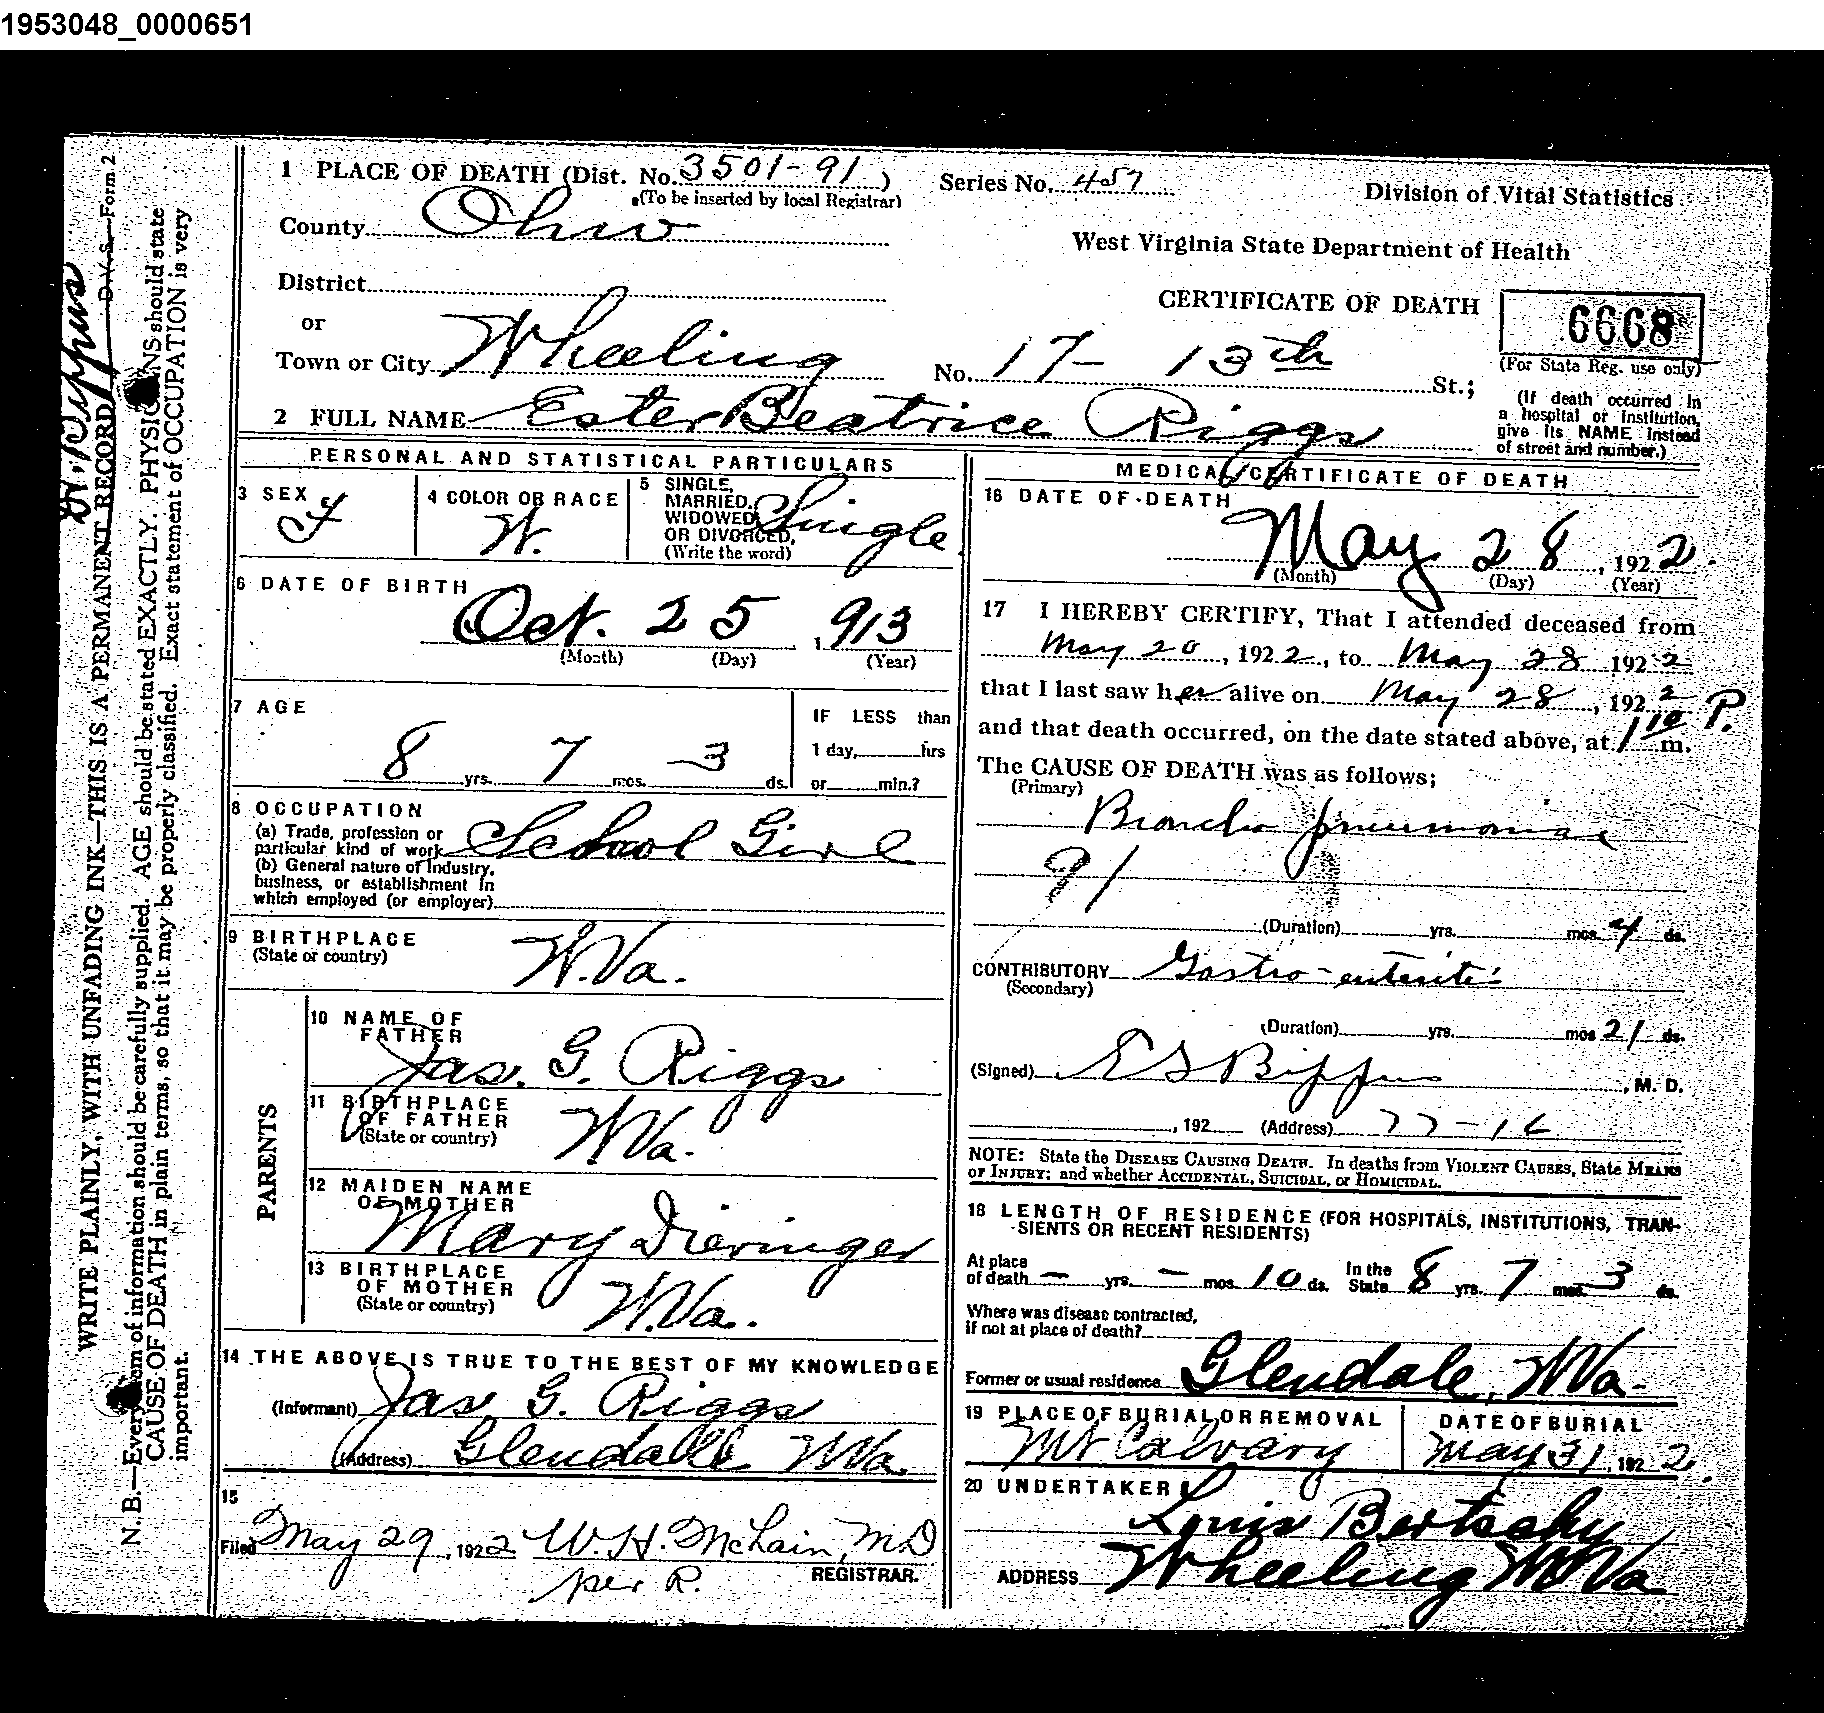 1953048_0000651
1 PLACE OF DEATH (Dist. No. 3501-91) Series No. 457 Division of Vital Statistics
(To be inserted by local Registrar)
County Ohio
West Virginia State Department of Health
District
CERTIFICATE OF DEATH 6668
or
Town or City Wheeling No. 17- 13th St.;
(For State Reg. use only)
(If death occurred in
a hospital or institution,
give its NAME instead
of street and number.)
2 FULL NAME Ester Beatrice Riggs
PERSONAL AND STATISTICAL PARTICULARS
3 SEX F
4 COLOR OR RACE W.
5 SINGLE,
MARRIED,
WIDOWED
OR DIVORCED,
(Write the word) Single
6 DATE OF BIRTH
Oct. 25, 913
(Month) (Day) (Year)
7 AGE
8 yrs. 7 mos. 3 ds.
IF LESS than
1 day, hrs
or min.?
8 OCCUPATION
(a) Trade, profession or
particular kind of work School Girl
(b) General nature of Industry,
business, or establishment in
which employed (or employer)
9 BIRTHPLACE
(State or country) W.Va.
PARENTS
10 NAME OF
FATHER
Jas. G. Riggs
11 BIRTHPLACE
OF FATHER
(State or country) W.Va.
12 MAIDEN NAME
OF MOTHER
Mary Dieringer
13 BIRTHPLACE
OF MOTHER
(State or country) W.Va.
14 THE ABOVE IS TRUE TO THE BEST OF MY KNOWLEDGE
(Informant) Jas G. Riggs
(Address) Glendale W Va.
15
Filed May 29, 1922 W. H. McLain, M D
per R. REGISTRAR.
MEDICAL CERTIFICATE OF DEATH
16 DATE OF DEATH
May 28, 1922.
(Month) (Day) (Year)
17 I HEREBY CERTIFY, That I attended deceased from
May 20, 1922, to May 28 1922
that I last saw her alive on May 28, 1922
and that death occurred, on the date stated above, at 1 10 P. m.
The CAUSE OF DEATH was as follows;
(Primary)
Broncho pneumonia
91
(Duration) yrs. mos. 4 ds.
CONTRIBUTORY Gastro-enteritis
(Secondary)
(Duration) yrs. mos 21 ds.
(Signed) E S Bippus, M. D.
, 192 (Address) 77-16
NOTE: State the DISEASE CAUSING DEATH. In deaths from VIOLENT CAUSES, State MEANS
or INJURY; and whether ACCIDENTAL, SUICIDAL, or HOMICIDAL.
18 LENGTH OF RESIDENCE (FOR HOSPITALS, INSTITUTIONS, TRAN-
-SIENTS OR RECENT RESIDENTS)
At place
of death - yrs. - mos. 10 ds. In the State 8 yrs. 7 mos. 3 ds.
Where was disease contracted,
if not at place of death?
Former or usual residence Glendale, W Va.
19 PLACE OF BURIAL OR REMOVAL
Mt Calvary
DATE OF BURIAL
May 31, 1922.
20 UNDERTAKER
Louis Bertschy
ADDRESS Wheeling W Va
Dr. Bippus
D. V. S.—Form 2
WRITE PLAINLY, WITH UNFADING INK—THIS IS A PERMANENT RECORD
N. B.—Every item of information should be carefully supplied. AGE should be stated EXACTLY. PHYSICIANS should state
CAUSE OF DEATH in plain terms, so that it may be properly classified. Exact statement of OCCUPATION is very
important.